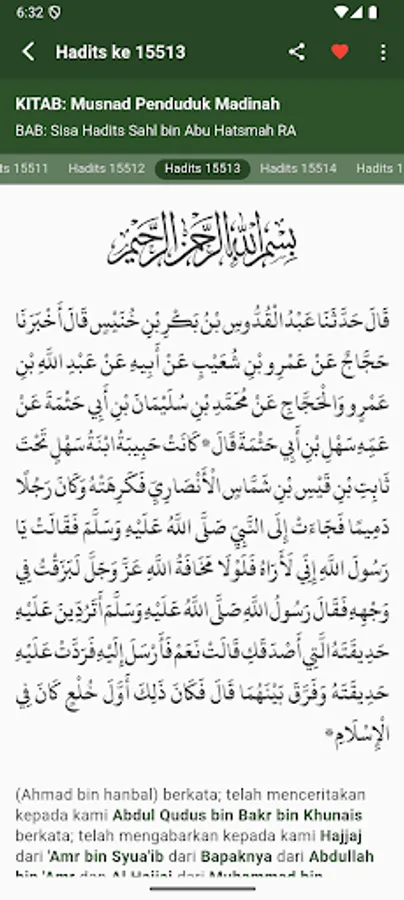 6:32
Hadits ke 15513
KITAB: Musnad Penduduk Madinah
BAB: Sisa Hadits Sahl bin Abu Hatsmah RA
ts 15511 Hadits 15512 Hadits 15513 Hadits 15514 Hadits 1
بِسْمِ اللَّهِ الرَّحْمَنِ الرَّحِيمِ
قَالَ حَدَّثَنَا عَبْدُ الْقُدُّوسِ بْنُ بَكْرِ بْنِ خُنَيْسٍ قَالَ أَخْبَرَنَا
حَجَّاجٌ عَنْ عَمْرِو بْنِ شُعَيْبٍ عَنْ أَبِيهِ عَنْ عَبْدِ اللَّهِ بْنِ
عَمْرٍو وَالْحَجَّاجِ عَنْ مُحَمَّدِ بْنِ سُلَيْمَانَ بْنِ أَبِي حَثْمَةَ عَنْ
عَمِّهِ سَهْلِ بْنِ أَبِي حَثْمَةَ قَالَ * كَانَتْ حَبِيبَةُ ابْنَةُ سَهْلٍ تَحْتَ
ثَابِتِ بْنِ قَيْسِ بْنِ شَمَّاسٍ الْأَنْصَارِيِّ فَكَرِهَتْهُ وَكَانَ رَجُلًا
دَمِيمًا فَجَاءَتْ إِلَى النَّبِيِّ صَلَّى اللَّهُ عَلَيْهِ وَسَلَّمَ فَقَالَتْ يَا
رَسُولَ اللَّهِ إِنِّي لَأَرَاهُ فَلَوْلَا مَخَافَةُ اللَّهِ عَزَّ وَجَلَّ لَبَزَقْتُ فِي
وَجْهِهِ فَقَالَ رَسُولُ اللَّهِ صَلَّى اللَّهُ عَلَيْهِ وَسَلَّمَ أَتَرُدِّينَ عَلَيْهِ
حَدِيقَتَهُ الَّتِي أَصْدَقَكِ قَالَتْ نَعَمْ فَأَرْسَلَ إِلَيْهِ فَرَدَّتْ عَلَيْهِ
حَدِيقَتَهُ وَفَرَّقَ بَيْنَهُمَا قَالَ فَكَانَ ذَلِكَ أَوَّلَ خُلْعٍ كَانَ فِي
الْإِسْلَامِ *
(Ahmad bin hanbal) berkata; telah menceritakan
kepada kami Abdul Qudus bin Bakr bin Khunais
berkata; telah mengabarkan kepada kami Hajjaj
dari 'Amr bin Syua'ib dari Bapaknya dari Abdullah
bin 'Amr dan Al Hajjaj dari Muhammad bin